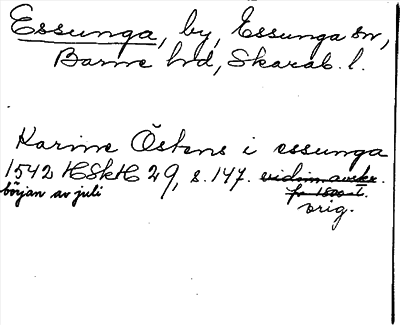 Essunga, by, Essunga sn,
Barne hd, Skarab. l.
Karine Östens i essunga
1542 HSkH 29, s. 147. vidim. avskr.
början av juli fr 1800-t.
orig.